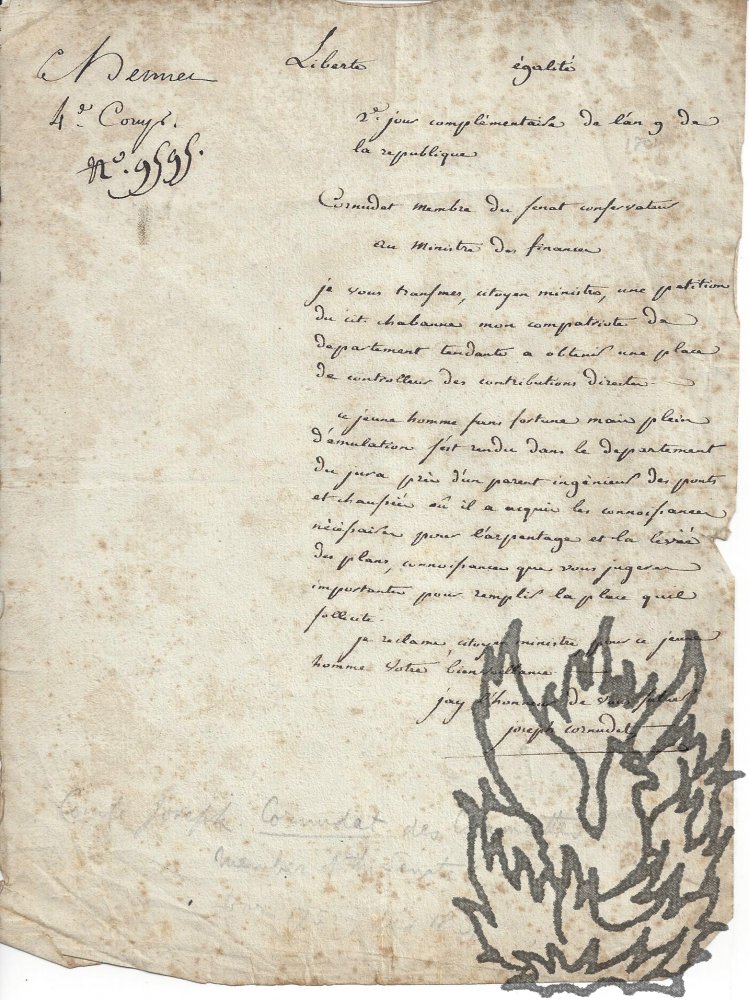 Liberté égalité
4e. Comp.
No. 9595.
2e. jour complémentaire de l'an 9 de
la republique
Cornudet membre du senat conservateur
au ministre des finances
je vous transmes, citoyen ministre, une petition
du cit. chabanne mon compatriote de
departement tendante a obtenir une place
de controlleur des contributions directes
ce jeune homme sans fortune mais plein
d'émulation s'est rendu dans le departement
du jura près d'un parent ingénieur des ponts
et chaussées où il a acquis les connoissances
nécéssaires pour l'arpentage et la levée
des plans, connoissances que vous jugerez
importantes pour remplir la place quil
sollicite.
je reclame, citoyen ministre pour ce jeune
homme votre bienveillance
jay l'honneur de vous saluer
joseph cornudet
Comte Joseph Cornudet des